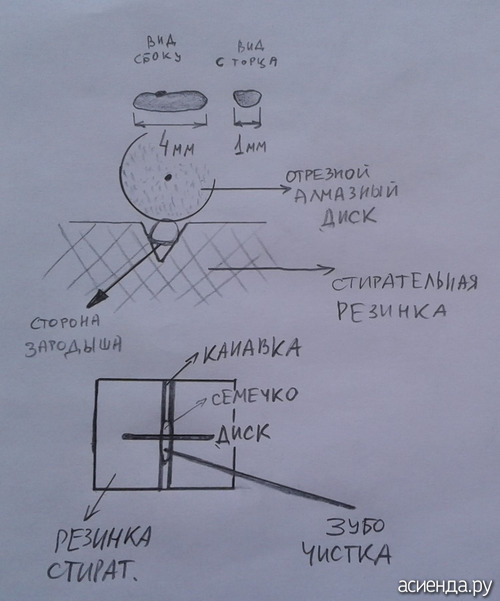 ВИД
СБОКУ
ВИД
С ТОРЦА
4мм
1мм
ОТРЕЗНОЙ
АЛМАЗНЫЙ
ДИСК
СТИРАТЕЛЬНАЯ
РЕЗИНКА
СТОРОНА
ЗАРОДЫША
КАНАВКА
СЕМЕЧКО
ДИСК
РЕЗИНКА
СТИРАТ.
ЗУБО
ЧИСТКА
асиенда.ру